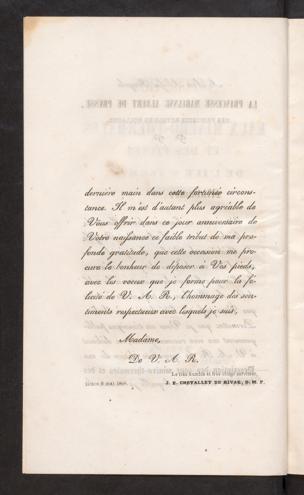 dernière main dans cette fortunée circons-
tance. Il m'est d'autant plus agréable de
Vous offrir dans ce jour anniversaire de
Votre naissance ce faible tribut de ma pro-
fonde gratitude, que cette occasion me pro-
cure le bonheur de déposer à Vos pieds,
avec les voeux que je forme pour la fé-
licité de V. A. R., l'hommage des sen-
timents respectueux avec lesquels je suis,
Madame,
De V. A. R.
Le très humble et très obligé serviteur,
J. E. CHEVALLEY DE RIVAZ, D. M. P.